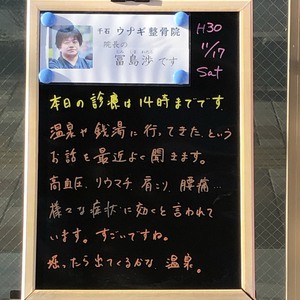 千石 ウナギ整骨院
院長の
冨島渉です
H30
11/17
Sat
本日の診療は14時までです
温泉や銭湯に行ってきた、という
お話を最近よく聞きます。
高血圧、リウマチ、肩こり、腰痛…
様々な症状に効くと言われて
います。すごいですね。
掘ったら出てくるかな、温泉。